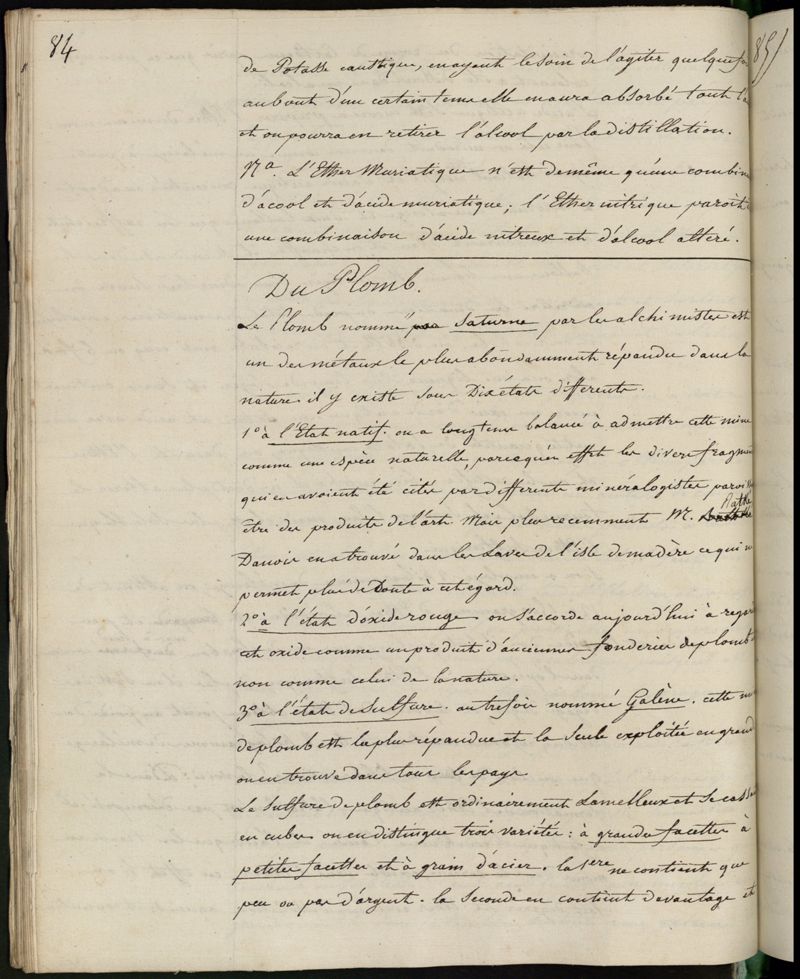 84
85
de Potasse caustique, en ayant le soin de l'agiter quelquefo
au bout d'un certain tems elle en aura absorbé tout l'a
et on pourra en retirer l'alcool par la distillation.
Na. L'Ether Muriatique n'est de même qu'une combin
d'acool et d'acide muriatique; l'Ether nitrique paroit
une combinaison d'acide nitreux et d'alcool alteré.
Du Plomb.
Le Plomb nommé Saturne par les alchimistes est
un des métaux le plus abondamment répandu dans la
nature. il y existe sous Dix états differents.
1° à l'Etat natif. on a longtems balancé à admettre cette mine
comme une espèce naturelle, parcequ'en effet les divers fragmen
qui en avoient été cités par differents minéralogistes parois
être des produits de l'art. Mais plus recemment M. Rathe
Danois en a trouvé dans les Laves de l'isle de madère ce qui n
permet plus de Doute à cet égard.
2° à l'état d'oxide rouge on s'accorde aujourd'hui à regar
cet oxide comme un produit d'anciennes fonderies de plomb
non comme celui de la nature.
3° à l'état de Sulfure. autrefois nommé Galène. cette m
de plomb est la plus répandue et la seule exploitée en grand
on en trouve dans tous les pays
Le Sulfure de plomb est ordinairement Lamelleux et se cass
en cubes on en distingue trois variétés: à grandes facettes à
petites facettes et à grain d'acier. la 1ere ne contient que
peu ou pas d'argent. la seconde en contient davantage et